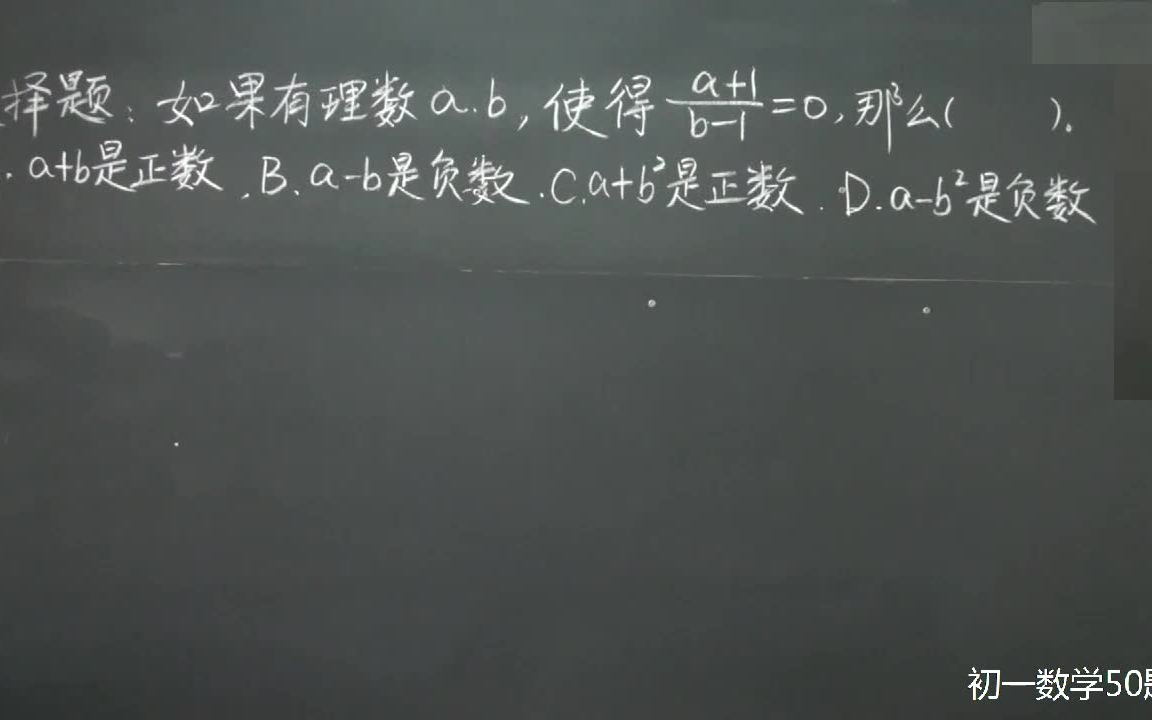 择题:如果有理数a.b,使得\frac{a+1}{b-1}=0,那么( ).
.a+b是正数,B.a-b是负数.C.a+b²是正数.D.a-b²是负数
初一数学50题